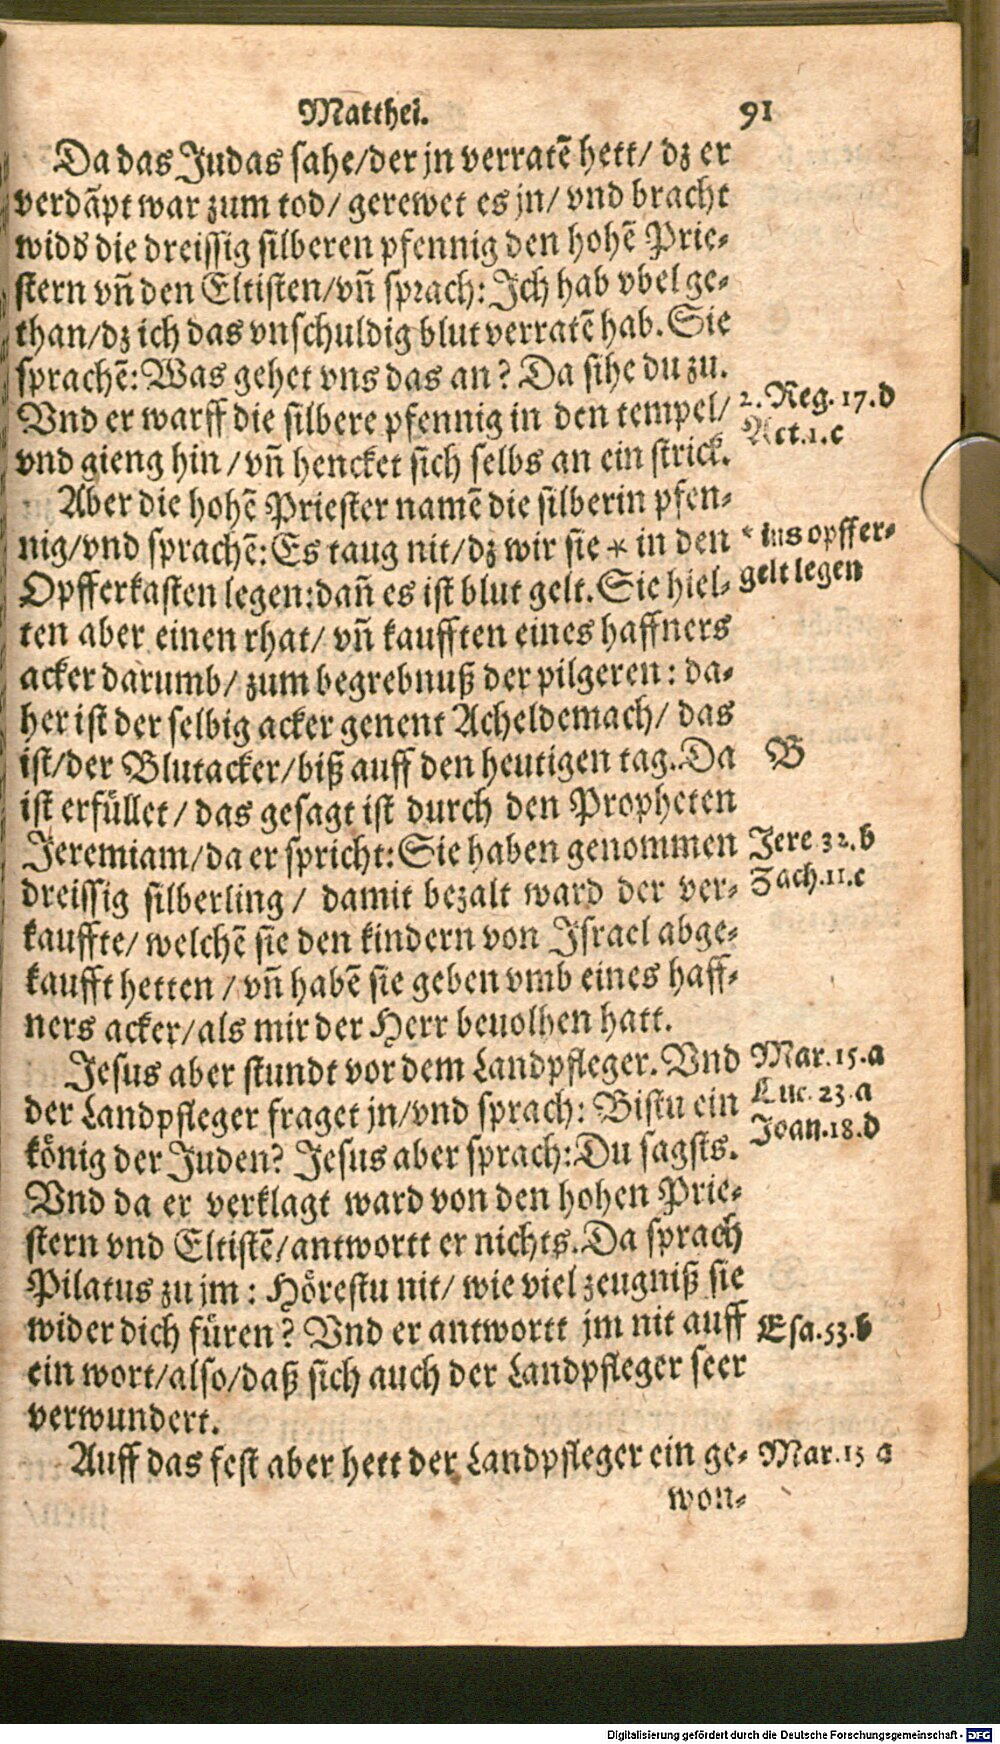 Matthei. 91
Da das Judas sahe/der jn verratẽ hett/ dz er
verdãpt war zum tod/ gerewet es jn/ vnd bracht
widð die dreissig silberen pfennig den hohẽ Prie-
stern vñ den Eltisten/vñ sprach: Ich hab vbel ge-
than/dz ich das vnschuldig blut verratẽ hab. Sie
sprachẽ: Was gehet vns das an? Da sihe du zu.
Vnd er warff die silbere pfennig in den tempel/
2. Reg. 17.d
Act.1.c
vnd gieng hin/vñ hencket sich selbs an ein strick.
Aber die hohẽ Priester namẽ die silberin pfen-
nig/vnd sprachẽ: Es taug nit/dz wir sie * in den
* ins opffer-
gelt legen
Opfferkasten legen:dañ es ist blut gelt. Sie hiel-
ten aber einen rhat/ vñ kaufften eines haffners
acker darumb/ zum begrebnuß der pilgeren: da-
her ist der selbig acker genent Acheldemach/ das
ist/der Blutacker/biß auff den heutigen tag. Da
B
ist erfüllet/ das gesagt ist durch den Propheten
Jeremiam/da er spricht: Sie haben genommen
Jere 32.b
Zach.11.c
dreissig silberling/ damit bezalt ward der ver-
kauffte/ welchẽ sie den kindern von Israel abge-
kaufft hetten/vñ habẽ sie geben vmb eines haff-
ners acker/als mir der Herr beuolhen hatt.
Jesus aber stundt vor dem Landpfleger. Vnd
Mar. 15.a
Luc. 23.a
Joan.18.d
der Landpfleger fraget jn/vnd sprach: Bistu ein
könig der Juden? Jesus aber sprach: Du sagsts.
Vnd da er verklagt ward von den hohen Prie-
stern vnd Eltistẽ/antwortt er nichts. Da sprach
Pilatus zu jm: Hörestu nit/ wie viel zeugniß sie
wider dich füren? Vnd er antwortt jm nit auff
Esa.53.b
ein wort/also/daß sich auch der Landpfleger seer
verwundert.
Auff das fest aber hett der Landpfleger ein ge-
Mar.15 a
won-
Digitalisierung gefördert durch die Deutsche Forschungsgemeinschaft - DFG